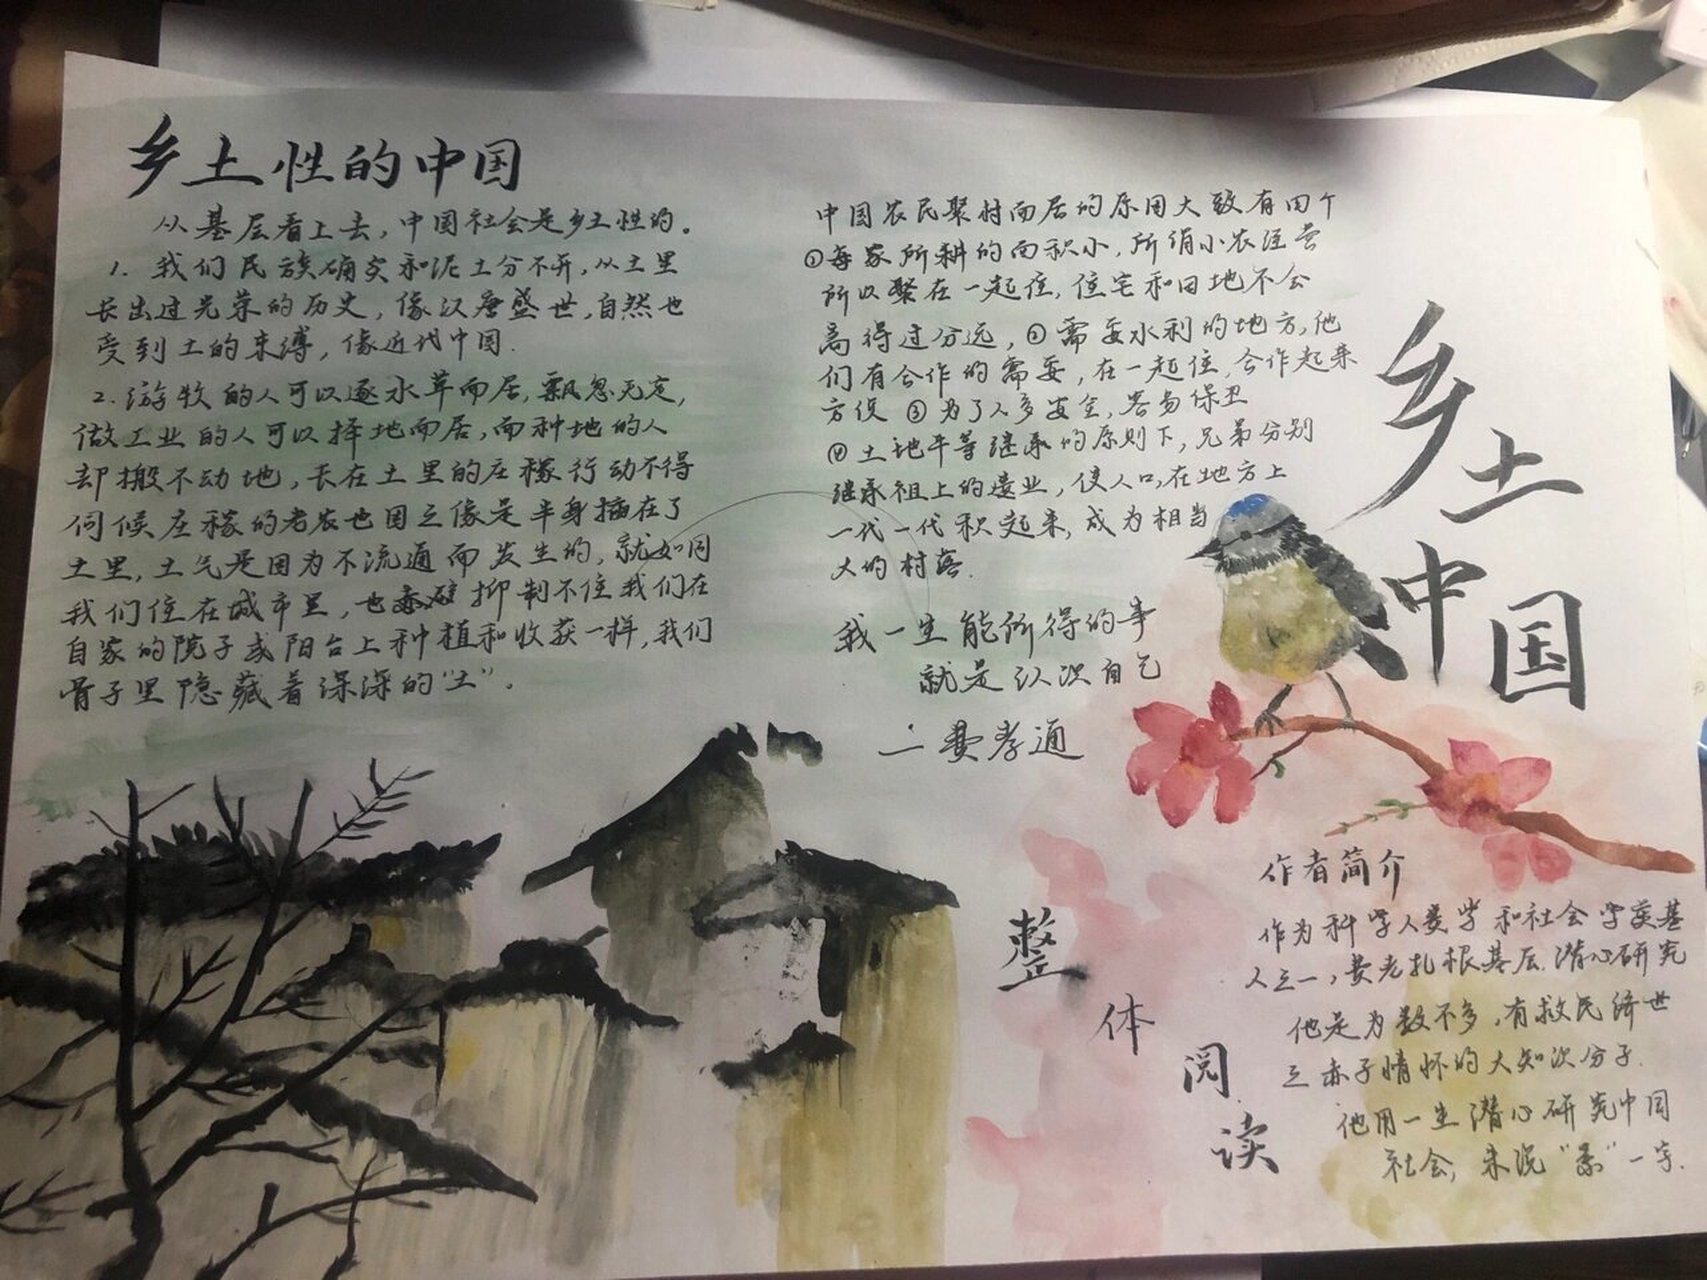 乡土性的中国
从基层看上去，中国社会是乡土性的。
1. 我们民族确实和泥土分不开，从土里
长出过光荣的历史，像汉唐盛世，自然也
受到土的束缚，像近代中国.
2. 游牧的人可以逐水草而居，飘忽无定，
做工业的人可以择地而居，而种地的人
却搬不动地，长在土里的庄稼行动不得
伺候庄稼的老农也因之像是半身插在了
土里，土气是因为不流通而发生的，就如同
我们住在城市里，也 抑制不住我们在
自家的院子或阳台上种植和收获一样，我们
骨子里隐藏着深深的“土”.
中国农民聚村而居的原因大致有四个
①每家所耕的面积小，所谓小农经营
所以聚在一起住，住宅和田地不会
离得过分远，②需要水利的地方，他
们有合作的需要，在一起住，合作起来
方便 ③为了人多安全，容易保卫
④土地平等继承的原则下，兄弟分别
继承祖上的遗业，使人口在地方上
一代一代积起来，成为相当
大的村落.
我一生能所得的事
就是认识自己
费孝通
乡土中国
作者简介
作为科学人类学和社会学奠基
人之一，费老扎根基层.潜心研究
他是为数不多，有救民济世
之赤子情怀的大知识分子.
他用一生潜心研究中国
社会，未说“累”一字.
整体阅读